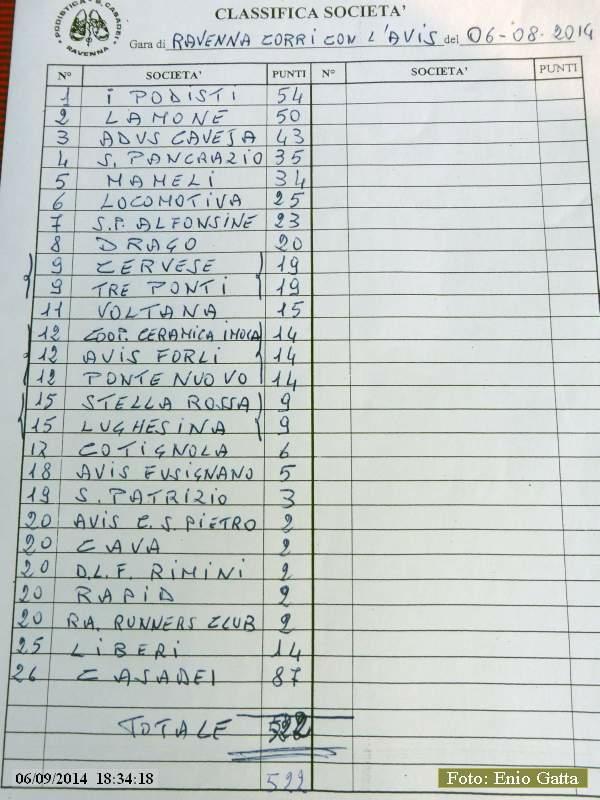 PODISTICA • S. CASADEI
RAVENNA
CLASSIFICA SOCIETA'
Gara di RAVENNA CORRI CON L'AVIS del 06-08-2014
N° SOCIETA' PUNTI N° SOCIETA' PUNTI
1 I PODISTI 54
2 LAMONE 50
3 ADVS CAVEJA 43
4 S. PANCRAZIO 35
5 MAMELI 34
6 LOCOMOTIVA 25
7 S.P. ALFONSINE 23
8 DRAGO 20
9 CERVESE 19
9 TRE PONTI 19
11 VOLTANA 15
12 COOP. CERAMICA IMOLA 14
12 AVIS FORLI 14
12 PONTE NUOVO 14
15 STELLA ROSSA 9
15 LUGHESINA 9
17 COTIGNOLA 6
18 AVIS FUSIGNANO 5
19 S. PATRIZIO 3
20 AVIS C.S. PIETRO 2
20 CAVA 2
20 D.L.F. RIMINI 2
20 RAPID 2
20 RA. RUNNERS CLUB 2
25 LIBERI 14
26 CASADEI 87
TOTALE 522
522
06/09/2014 18:34:18
Foto: Enio Gatta